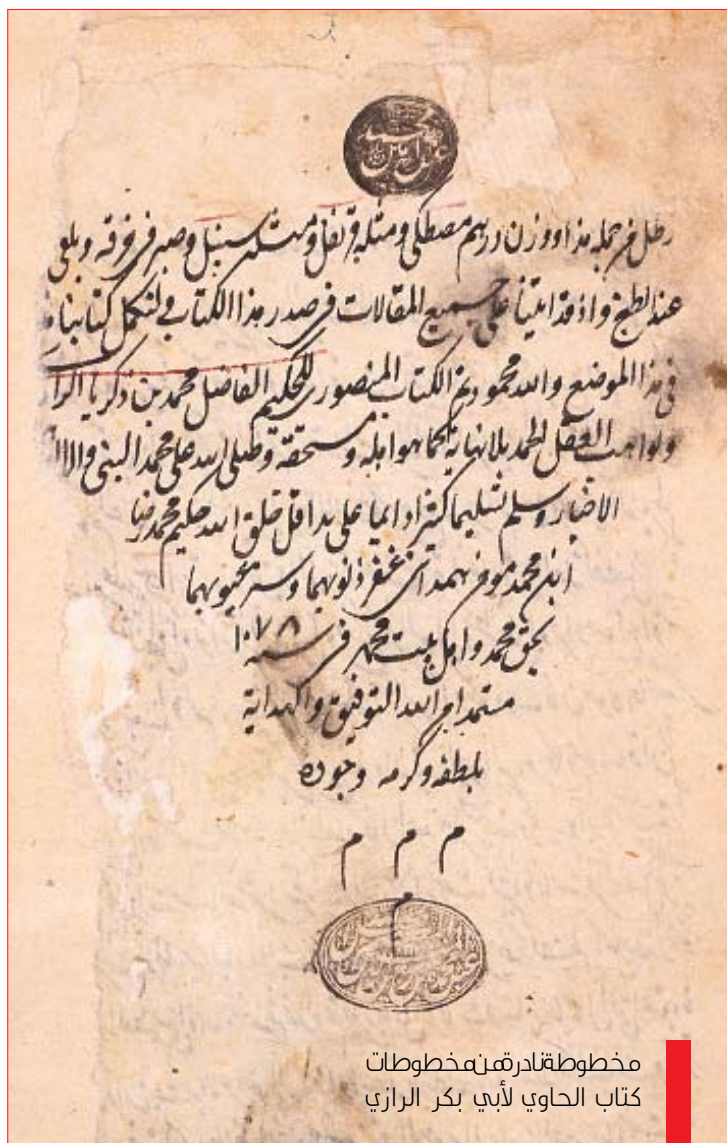 رطل من جملة هذا ووزن درهم مصطكى ومثله قرنفل ومثله سنبل وصير فى خرقة ويلقى
عند الطبخ واذ قد اتينا على جميع المقالات فى صدر هذا الكتاب فلنكمل كتابنا
فى هذا الموضع والله محمود تم الكتاب المنصورى للحكيم الفاضل محمد بن زكريا الرا
ولواهب العقل الحمد بلا نهاية كما هو اهله ومستحقه وصلى الله على محمد النبى
الاخيار وسلم تسليما كثيرا دايما على يد اقل خلق الله حكيم محمد رضا
ابن محمد مومن همدانى غفر ذنوبهما وستر عيوبهما
بحق محمد واهل بيت محمد فى سنه ١٠٧٨
مستمدا من الله التوفيق والهداية
بلطفه وكرمه وجوده
م م م
م
مخطوطة نادرة من مخطوطات
كتاب الحاوي لأبي بكر الرازي